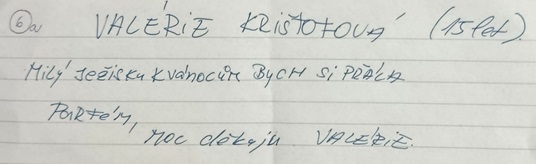 6a) VALÉRIE KRIŠTOTOVÁ (15 let).
MILÝ JEŽÍŠKU K VÁNOCŮM BYCH SI PŘÁLA
PARFÉM,
MOC děkuju VALÉRIE.